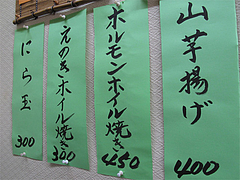 山芋揚げ
400
ホルモンホイル焼き
450
えのきホイル焼き
300
にら玉
300